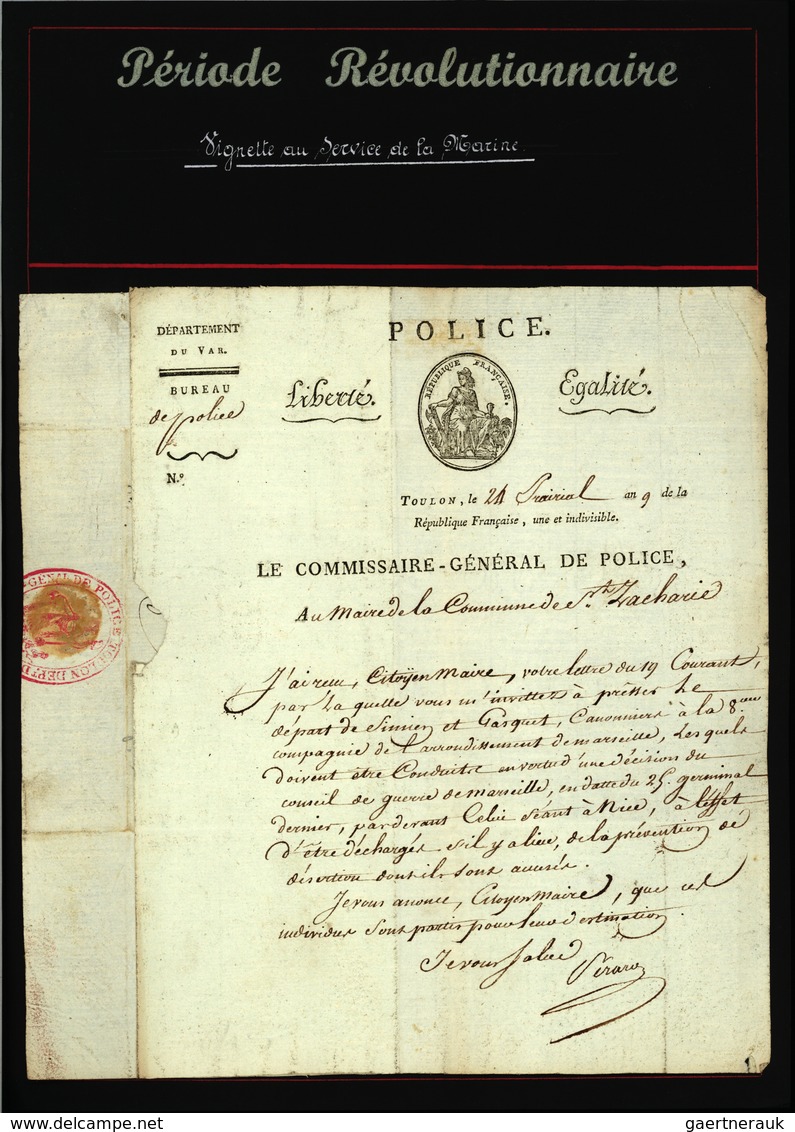 Période Révolutionnaire
Vignette au Service de la Marine
DÉPARTEMENT
DU VAR.
BUREAU
de police
N.º
POLICE.
Liberté.
RÉPUBLIQUE FRANÇAISE.
Egalité.
TOULON, le 24 Prairial an 9 de la
République Française, une et indivisible.
LE COMMISSAIRE-GÉNÉRAL DE POLICE,
Au Maire de la Commune de St. Zacharie
J'ai reçu, Citoÿen Maire, votre lettre du 19 Courant,
par la quelle vous m'invittez à présser le
départ de Simier et Gasquet, Canonniers à la 8.eme
compagnie de l'arrondissement de marseille, Lesquels
doivent être Conduits en vertu d'une décision du
conseil de guerre de marseille, en datte du 25. germinal
dernier, pardevant Celui Séant à Nice, à l'effet
D'être déchargés s'il y a lieu, de la prévention de
désertion dont ils sont accusés.
Je vous anonce, Citoyen Maire, que ces
individus Sont partis pour leur destination.
Je vous Salue
GENAL DE POLICE TOULON DEPT D
gaertnerauk